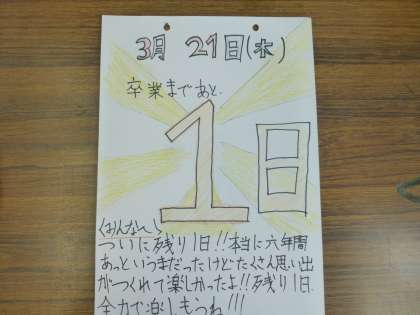 3月 21日(木)
卒業まであと.
1日
<みんなへ>
ついに残り1日!!本当に六年間
あっというまだったけどたくさん思い出
がつくれて楽しかったよ!!残り1日
全力で楽しもうね!!!